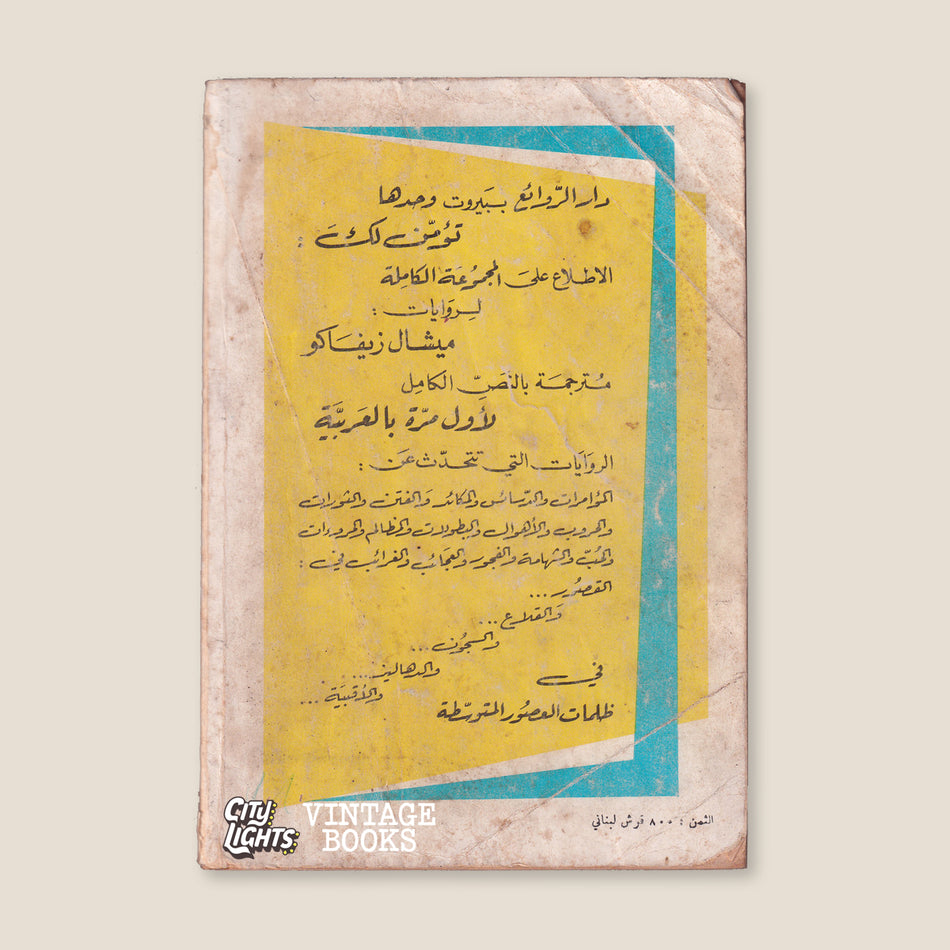 دار الرّوائع بسَيروت وحدها
تؤمّن لكَ :
الاطلاع علىَ المجمُوعَة الكامِلة
لِروَايات :
ميشال زيفاكو
مُترجمَة بالنصّ الكامِل
لأول مرّة بالعَربيَّةِ
الروَايَات التي تتحدّث عَن :
المؤامرات والدّسائس والمكائد وَالفتن والثورات
والحروب والأهوال والبطولات والمظالم والمروءات
والحُبّ والشهامة والفجور والعجَائب والغرائب في :
القصُور...
وَالقلاع...
والسجُون...
والدهاليز...
والأقبيَة...
في
ظلمات العصُور المتوسّطة
الثمن : ٨٠٠ قرش لبناني
CITY LIGHTS
VINTAGE
BOOKS